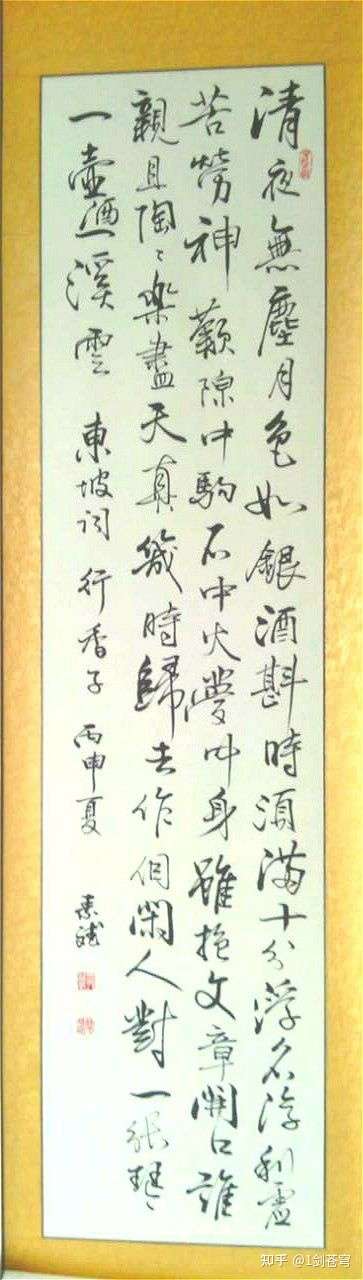 清夜無塵月色如銀酒斟時須滿十分浮名浮利虛
苦勞神歎隙中駒石中火夢中身雖抱文章開口誰
親且陶〻樂盡天真幾時歸去作個閑人對一張琴
一壺酒一溪雲 東坡詞 行香子 丙申夏
知乎 @1剑苍穹